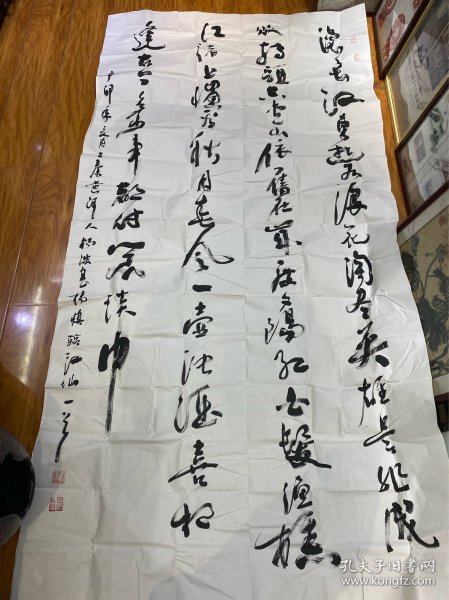 滚滚长江东逝水浪花淘尽英雄是非成
败转头空青山依旧在几度夕阳红白发渔樵
江渚上惯看秋月春风一壶浊酒喜相
逢古今多少事都付笑谈中
卯年夏月三秦人书杨慎临江仙一首
孔夫子旧书网
www.kongfz.com